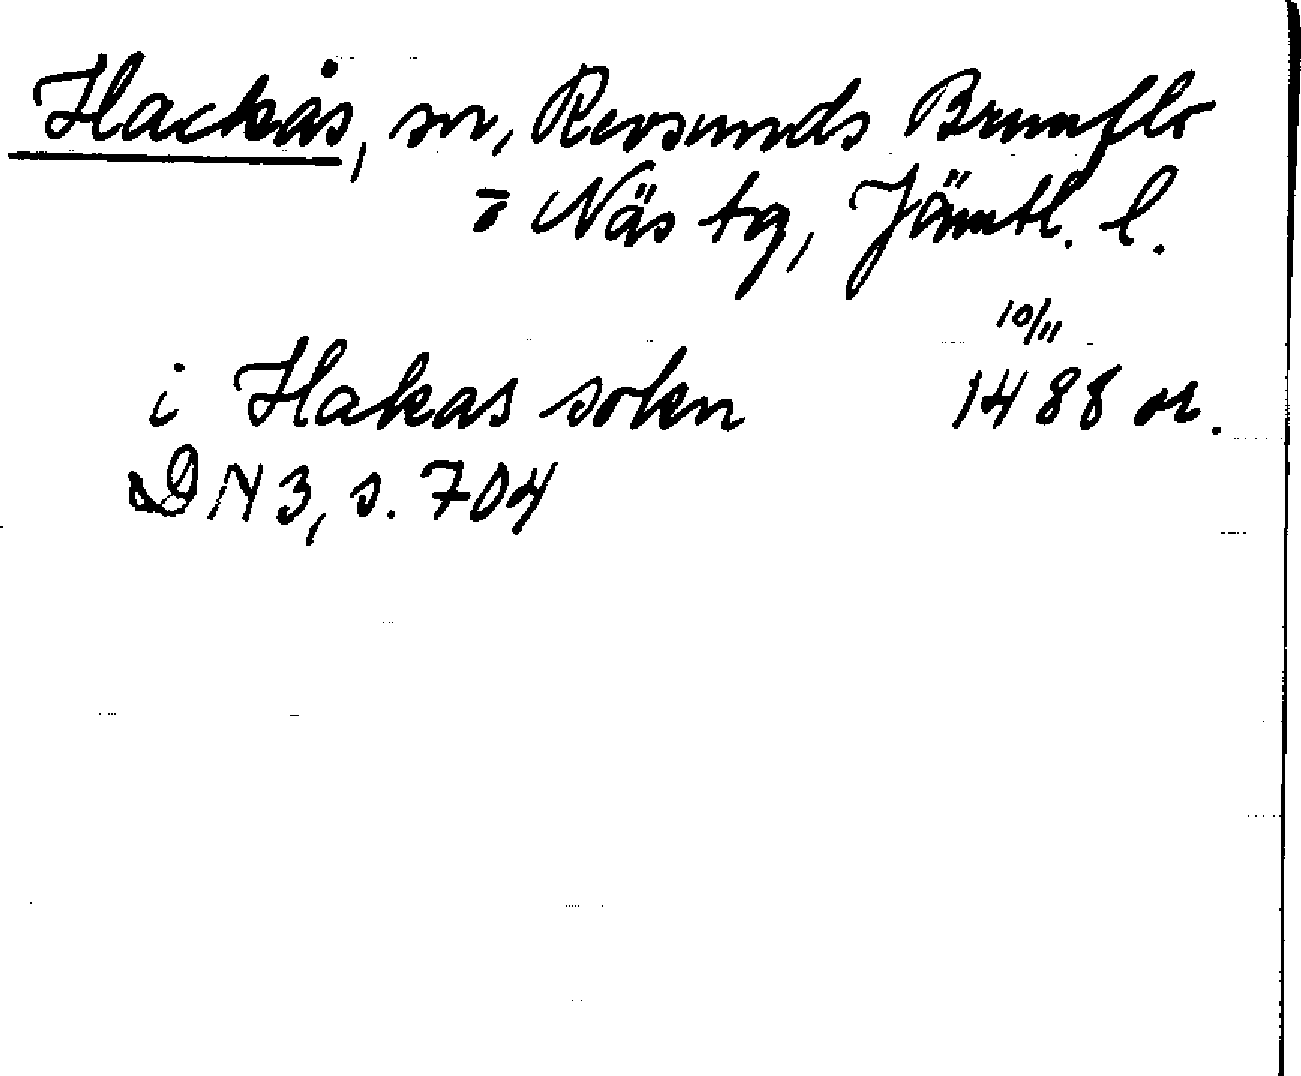 Hackås, sn, Revsunds Brunflo
o Näs tg, Jämtl. l.
10/11
i Hakas sokn 1488 or.
DN 3, s. 704